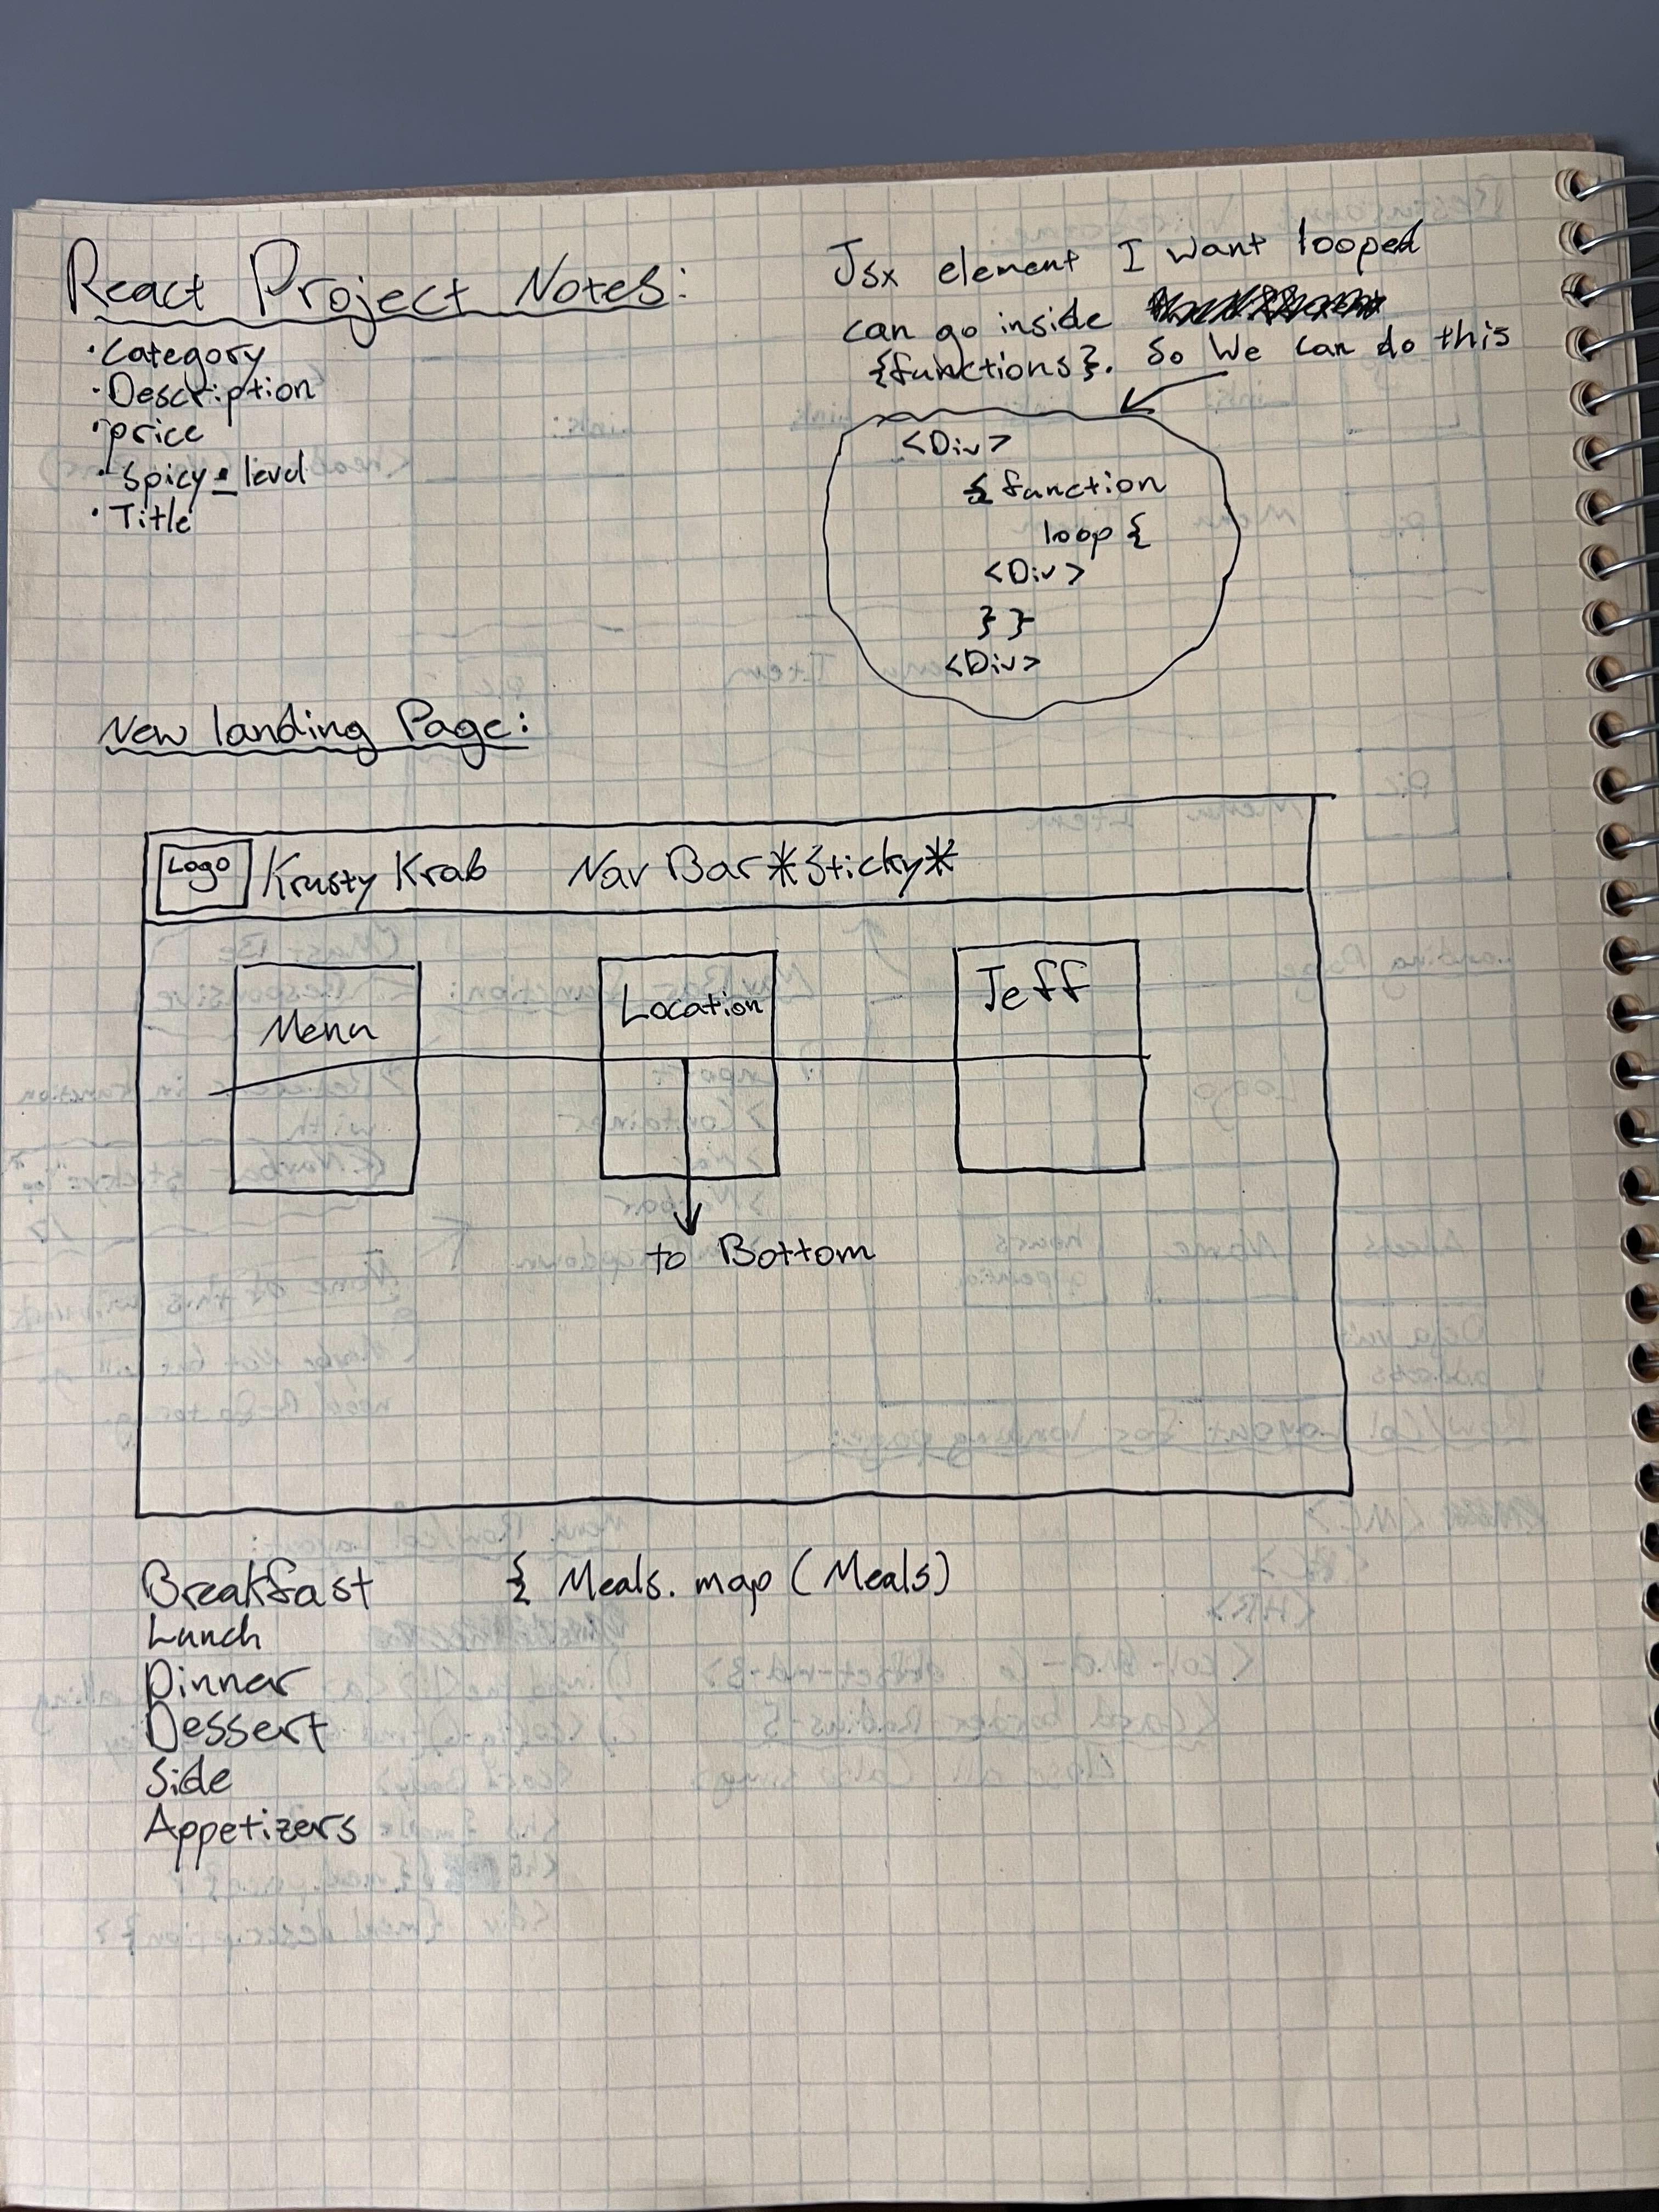 React Project Notes:
·Category
·Description
·price
·Spicy_level
·Title
Jsx element I want looped
can go inside
{functions}. So We can do this
<Div>
{function
loop {
<Div>
} }
<Div>
New landing Page:
Logo Krusty Krab Nav Bar *Sticky*
Menu
Location
Jeff
to Bottom
Breakfast { Meals. map (Meals)
Lunch
Dinner
Dessert
Side
Appetizers